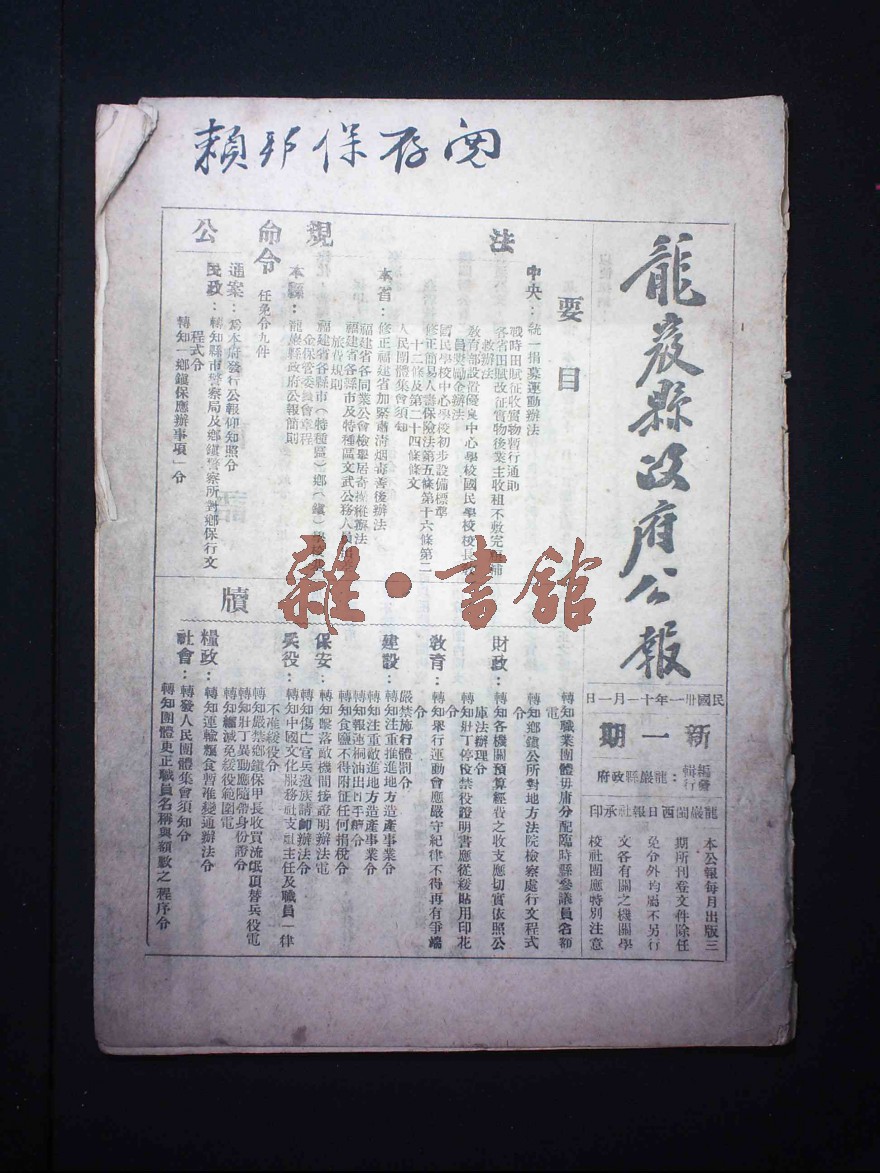 賴邦保存閱
龍巖縣政府公報
民國卅一年十一月一日
新一期
編輯發行：龍巖縣政府
龍巖閩西日報社承印
本公報每月出版三
期所刊登文件除任
免令外均屬不另行
文各有關之機關學
校社團應特別注意
要目
法規
中央：統一捐募運動辦法
戰時田賦征收實物暫行通則
各省田賦改征實物後業主收租不敷完糧補
救辦法
教育部設置優良中心學校國民學校校長
員獎勵金辦法
國民學校中心學校初步設備標準
修正簡易人壽保險法第五條第十六條第二
十二條及第二十四條條文
人民團體集會須知
本省：修正福建省加緊肅清烟毒善後辦法
福建省各同業公會檢舉居奇操縱辦法
福建省各縣市及特種區文武公務人員
旅費規則
福建省各縣市（特種區）鄉（鎮）
金保管委員會章程
本縣：龍巖縣政府公報簡則
命令
任免令九件
公牘
通案：為本府發行公報仰知照令
民政：轉知縣市警察局及鄉鎮警察所對鄉保行文
程式令
轉知一鄉鎮保應辦事項一令
轉知職業團體毋庸分配臨時縣參議員名額
電
轉知鄉鎮公所對地方法院檢察處行文程式
令
財政：轉知各機關預算經費之收支應切實依照公
庫法辦理令
轉知壯丁停役禁役證明書應從緩貼用印花
令
教育：轉知舉行運動會應嚴守紀律不得再有爭端
令
嚴禁施行體罰令
建設：轉知注重推進地方造產事業令
轉知注重敵進地方造產事業令
轉知報運桐油出口手續令
轉知食鹽不得附征任何捐稅令
保安：轉知擊落敵機間接證明辦法電
轉知傷亡官兵遺族請卹辦法令
兵役：轉知中國文化服務社支社主任及職員一律
不准緩役令
轉知嚴禁鄉鎮保甲長收買流氓頂替兵役電
轉知壯丁異動應隨帶身份證令
轉知縮減免緩役範圍電
糧政：轉知運輸糧食暫准變通辦法令
社會：轉發人民團體集會須知令
轉知團體更正職員名稱與額數之程序令
雜·書館